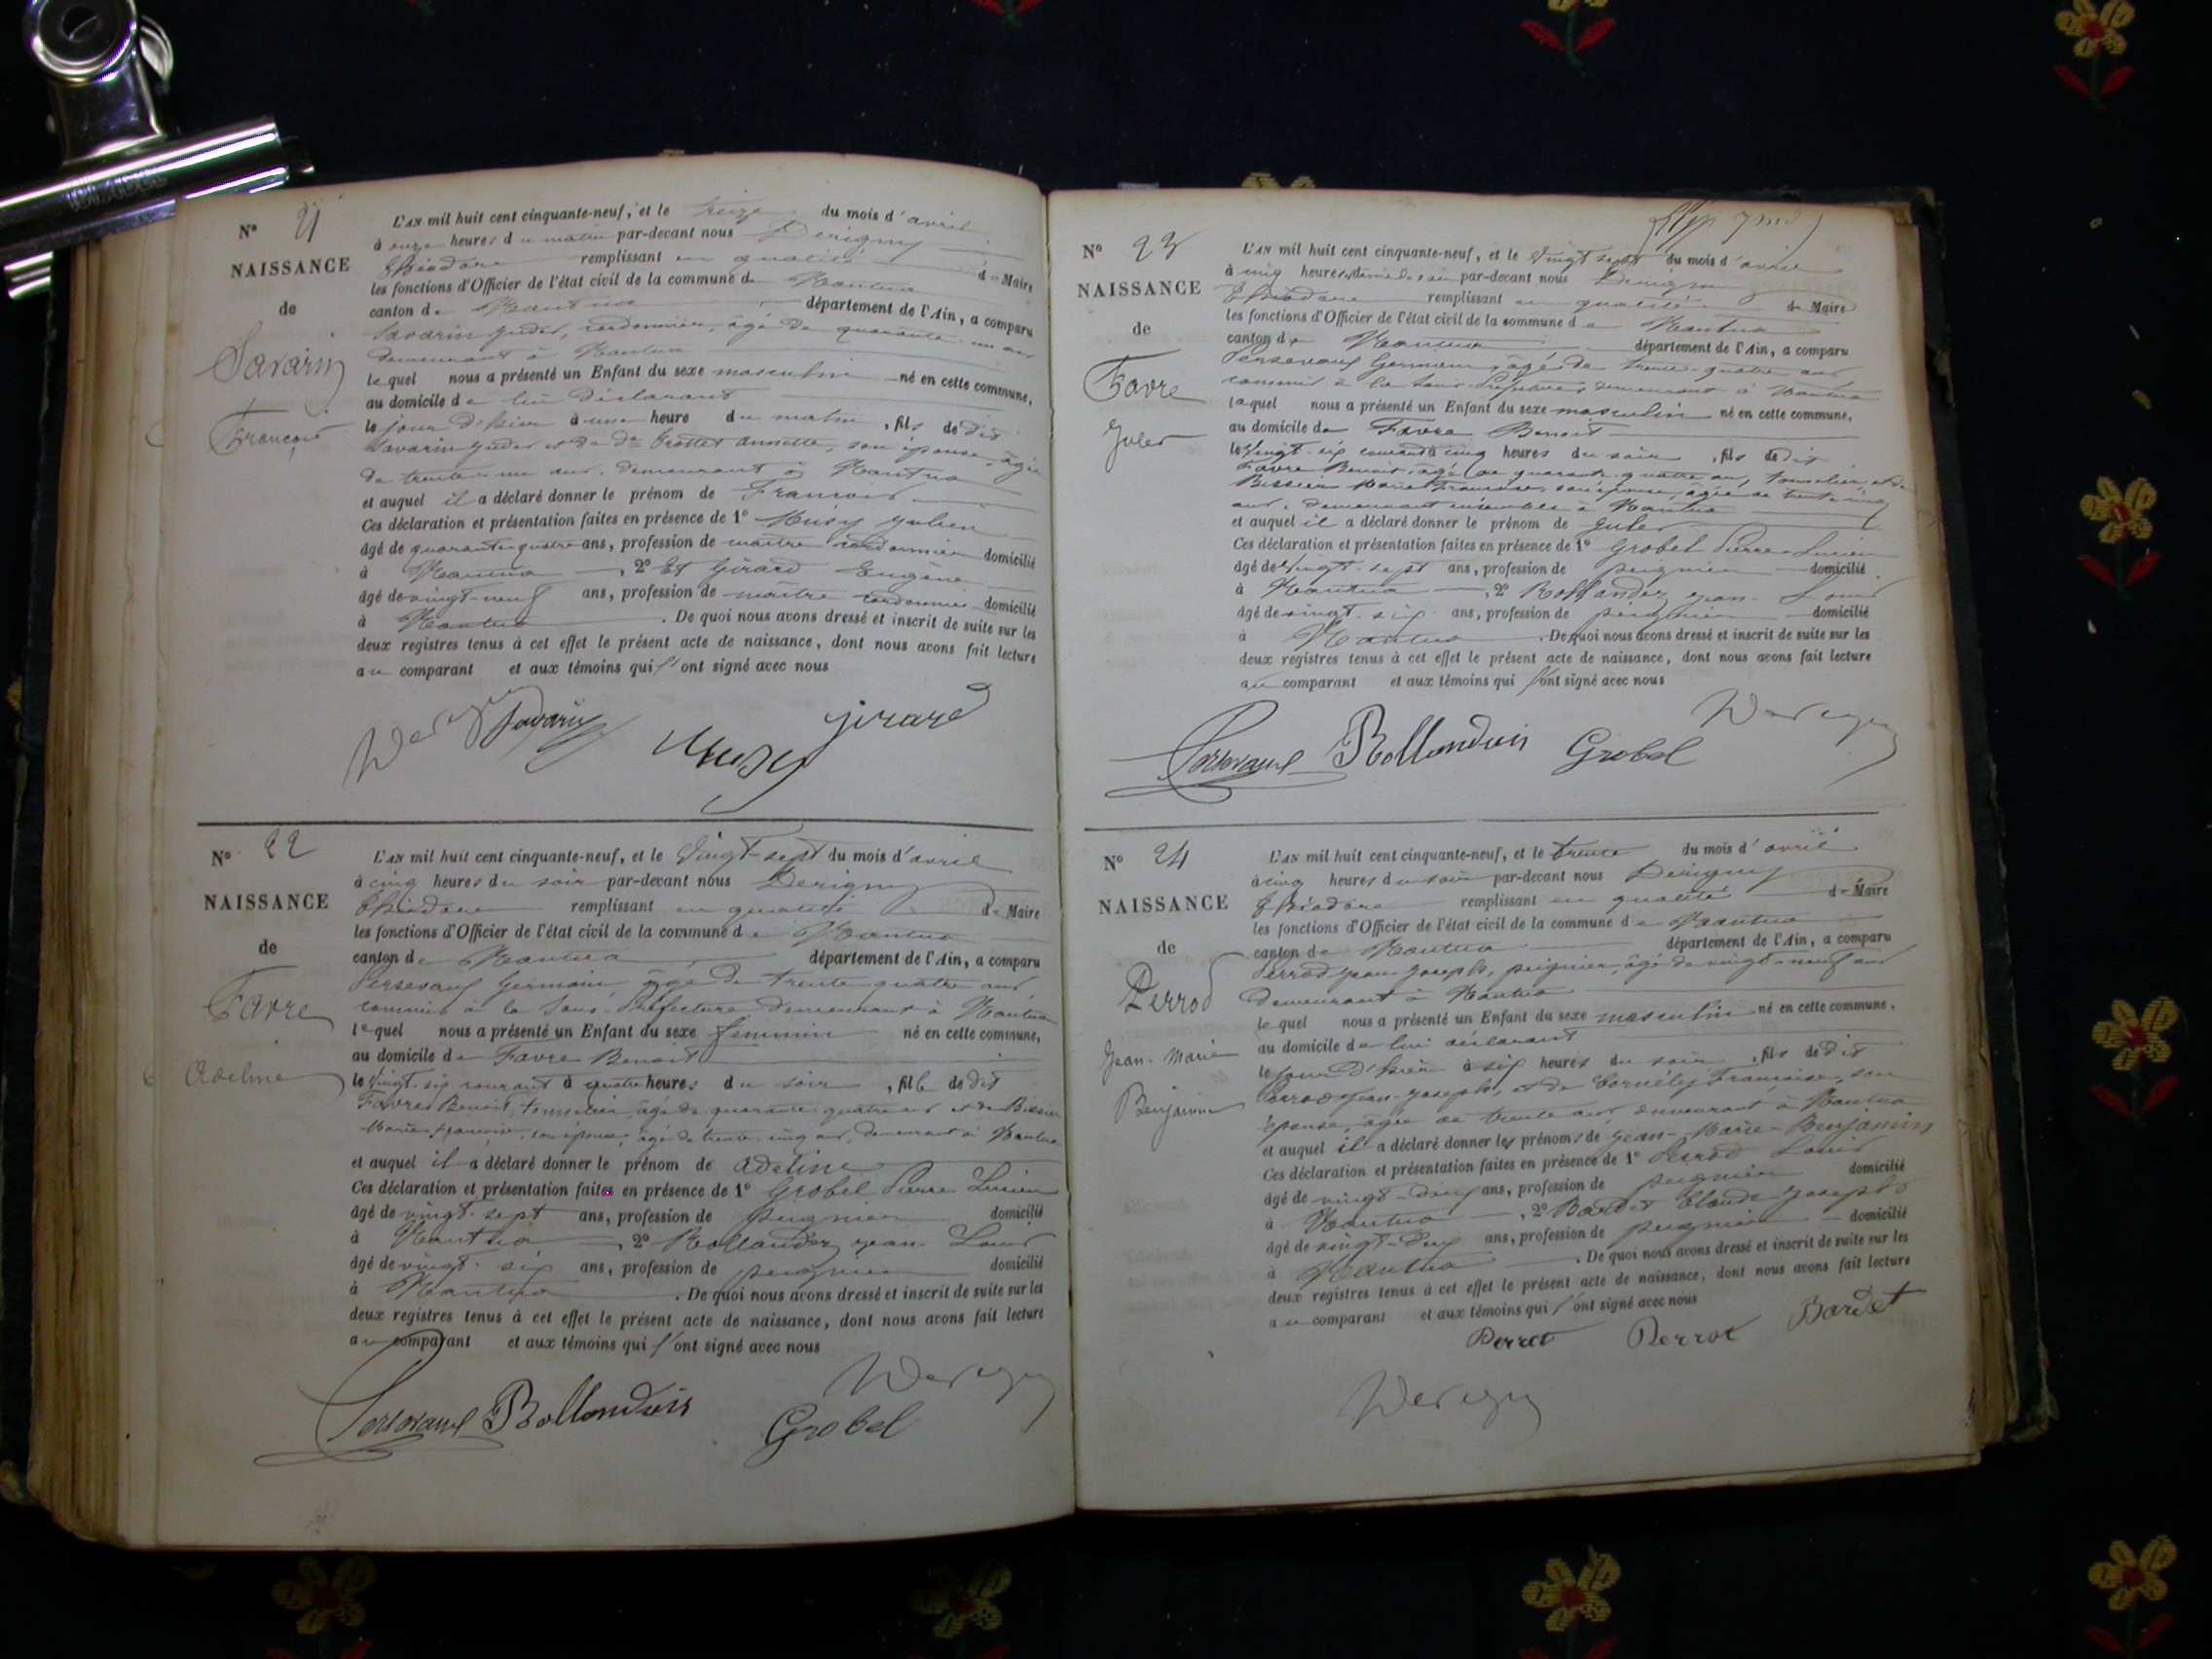 N° 21
NAISSANCE
de
Savarin
François
L'AN mil huit cent cinquante-neuf, et le treize du mois d'avril
à onze heures du matin par-devant nous Derigny
Théodore remplissant en qualité de Maire
les fonctions d'Officier de l'état civil de la commune de Nantua
canton de Nantua département de l'Ain, a comparu
Savarin, cordonnier, âgé de quarante-un ans
demeurant à Nantua
lequel nous a présenté un Enfant du sexe masculin né en cette commune,
au domicile de lui déclarant
le jour d'hier à une heure du matin, fils de dit
Savarin et de De Annette, son épouse, âgée
de trente-un ans, demeurant à Nantua
et auquel il a déclaré donner le prénom de François
Ces déclaration et présentation faites en présence de 1° Musy Julien
âgé de quarante-quatre ans, profession de maître cordonnier domicilié
à Nantua, 2° Et Girard Eugène
âgé de vingt-neuf ans, profession de maître cordonnier domicilié
à Nantua. De quoi nous avons dressé et inscrit de suite sur les
deux registres tenus à cet effet le présent acte de naissance, dont nous avons fait lecture
au comparant et aux témoins qui l'ont signé avec nous
Derigny Savarin Musy Girard
N° 22
NAISSANCE
de
Favre
Adeline
L'AN mil huit cent cinquante-neuf, et le vingt-sept du mois d'avril
à cinq heures du soir par-devant nous Derigny
Théodore remplissant en qualité de Maire
les fonctions d'Officier de l'état civil de la commune de Nantua
canton de Nantua département de l'Ain, a comparu
Germain âgé de trente-quatre ans
commis à la Sous-Préfecture demeurant à Nantua
lequel nous a présenté un Enfant du sexe féminin né en cette commune,
au domicile de Favre Benoit
le vingt-six courant à quatre heures du soir, fille de dit
Favre Benoit, tonnelier, âgé de quarante-quatre ans et de Bessier
Marie Françoise, son épouse, âgée de trente-cinq ans, demeurant à Nantua
et auquel il a déclaré donner le prénom de Adeline
Ces déclaration et présentation faites en présence de 1° Grobel Pierre Lucien
âgé de vingt-sept ans, profession de peignier domicilié
à Nantua, 2° Rollandez Jean Louis
âgé de vingt-six ans, profession de peignier domicilié
à Nantua. De quoi nous avons dressé et inscrit de suite sur les
deux registres tenus à cet effet le présent acte de naissance, dont nous avons fait lecture
au comparant et aux témoins qui l'ont signé avec nous
Derigny
Grobel
N° 23
NAISSANCE
de
Favre
Jules
L'AN mil huit cent cinquante-neuf, et le vingt sept du mois d'avril
à cinq heures et demie du soir par-devant nous Derigny
Théodore remplissant en qualité de Maire
les fonctions d'Officier de l'état civil de la commune de Nantua
canton de Nantua département de l'Ain, a comparu
Germain, âgé de trente-quatre ans
commis à la Sous-Préfecture, demeurant à Nantua
lequel nous a présenté un Enfant du sexe masculin né en cette commune,
au domicile de Favre Benoit
le vingt-six courant à cinq heures du soir, fils de dit
Favre Benoit, âgé de quarante-quatre ans, tonnelier, et de
Bessier Marie Françoise, son épouse, âgée de trente-cinq
ans, demeurant ensemble à Nantua
et auquel il a déclaré donner le prénom de Jules
Ces déclaration et présentation faites en présence de 1° Grobel Pierre Lucien
âgé de vingt-sept ans, profession de peignier domicilié
à Nantua, 2° Rollandez Jean Louis
âgé de vingt-six ans, profession de peignier domicilié
à Nantua. De quoi nous avons dressé et inscrit de suite sur les
deux registres tenus à cet effet le présent acte de naissance, dont nous avons fait lecture
au comparant et aux témoins qui l'ont signé avec nous
Grobel Derigny
N° 24
NAISSANCE
de
Perrod
Jean-Marie
Benjamin
L'AN mil huit cent cinquante-neuf, et le trente du mois d'avril
à cinq heures du soir par-devant nous Derigny
Théodore remplissant en qualité de Maire
les fonctions d'Officier de l'état civil de la commune de Nantua
canton de Nantua département de l'Ain, a comparu
Perrod Jean-Joseph, peignier, âgé de vingt-neuf ans
demeurant à Nantua
lequel nous a présenté un Enfant du sexe masculin né en cette commune,
au domicile de lui déclarant
le jour d'hier à six heures du soir, fils de dit
Perrod Jean-Joseph, et de Françoise, son
épouse, âgée de trente ans, demeurant à Nantua
et auquel il a déclaré donner les prénoms de Jean-Marie Benjamin
Ces déclaration et présentation faites en présence de 1° Perrod Louis
âgé de vingt- ans, profession de peignier domicilié
à Nantua, 2° Bardet Claude Joseph
âgé de vingt- ans, profession de peignier domicilié
à Nantua. De quoi nous avons dressé et inscrit de suite sur les
deux registres tenus à cet effet le présent acte de naissance, dont nous avons fait lecture
au comparant et aux témoins qui l'ont signé avec nous
Perrot Perrot Bardet
Derigny